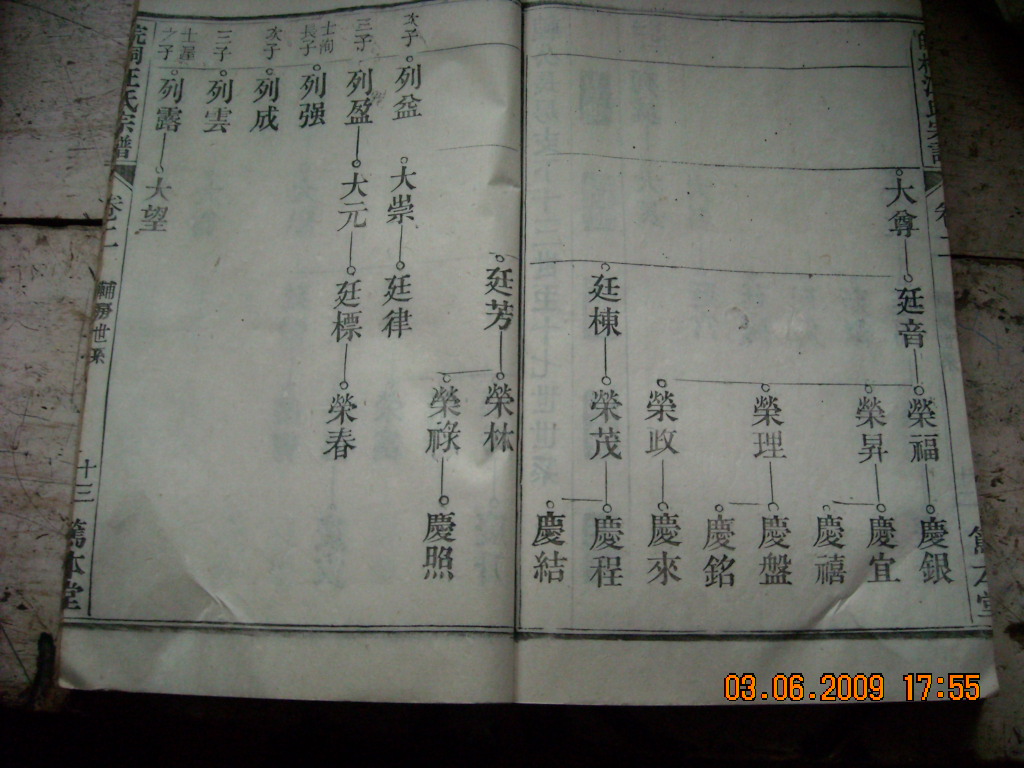 大尊
廷音
榮福
慶銀
榮昇
慶宜
慶禧
榮理
慶盤
慶銘
榮政
慶來
廷棟
榮茂
慶程
慶結
廷芳
榮林
榮祿
慶照
次子
列益
大崇
廷律
三子
列盈
大元
廷標
榮春
士洵
長子
列强
次子
列成
三子
列雲
士星
之子
列露
大望
皖桐汪氏宗譜
卷二
輔房世系
十三
篤本堂
03.06.2009 17:55